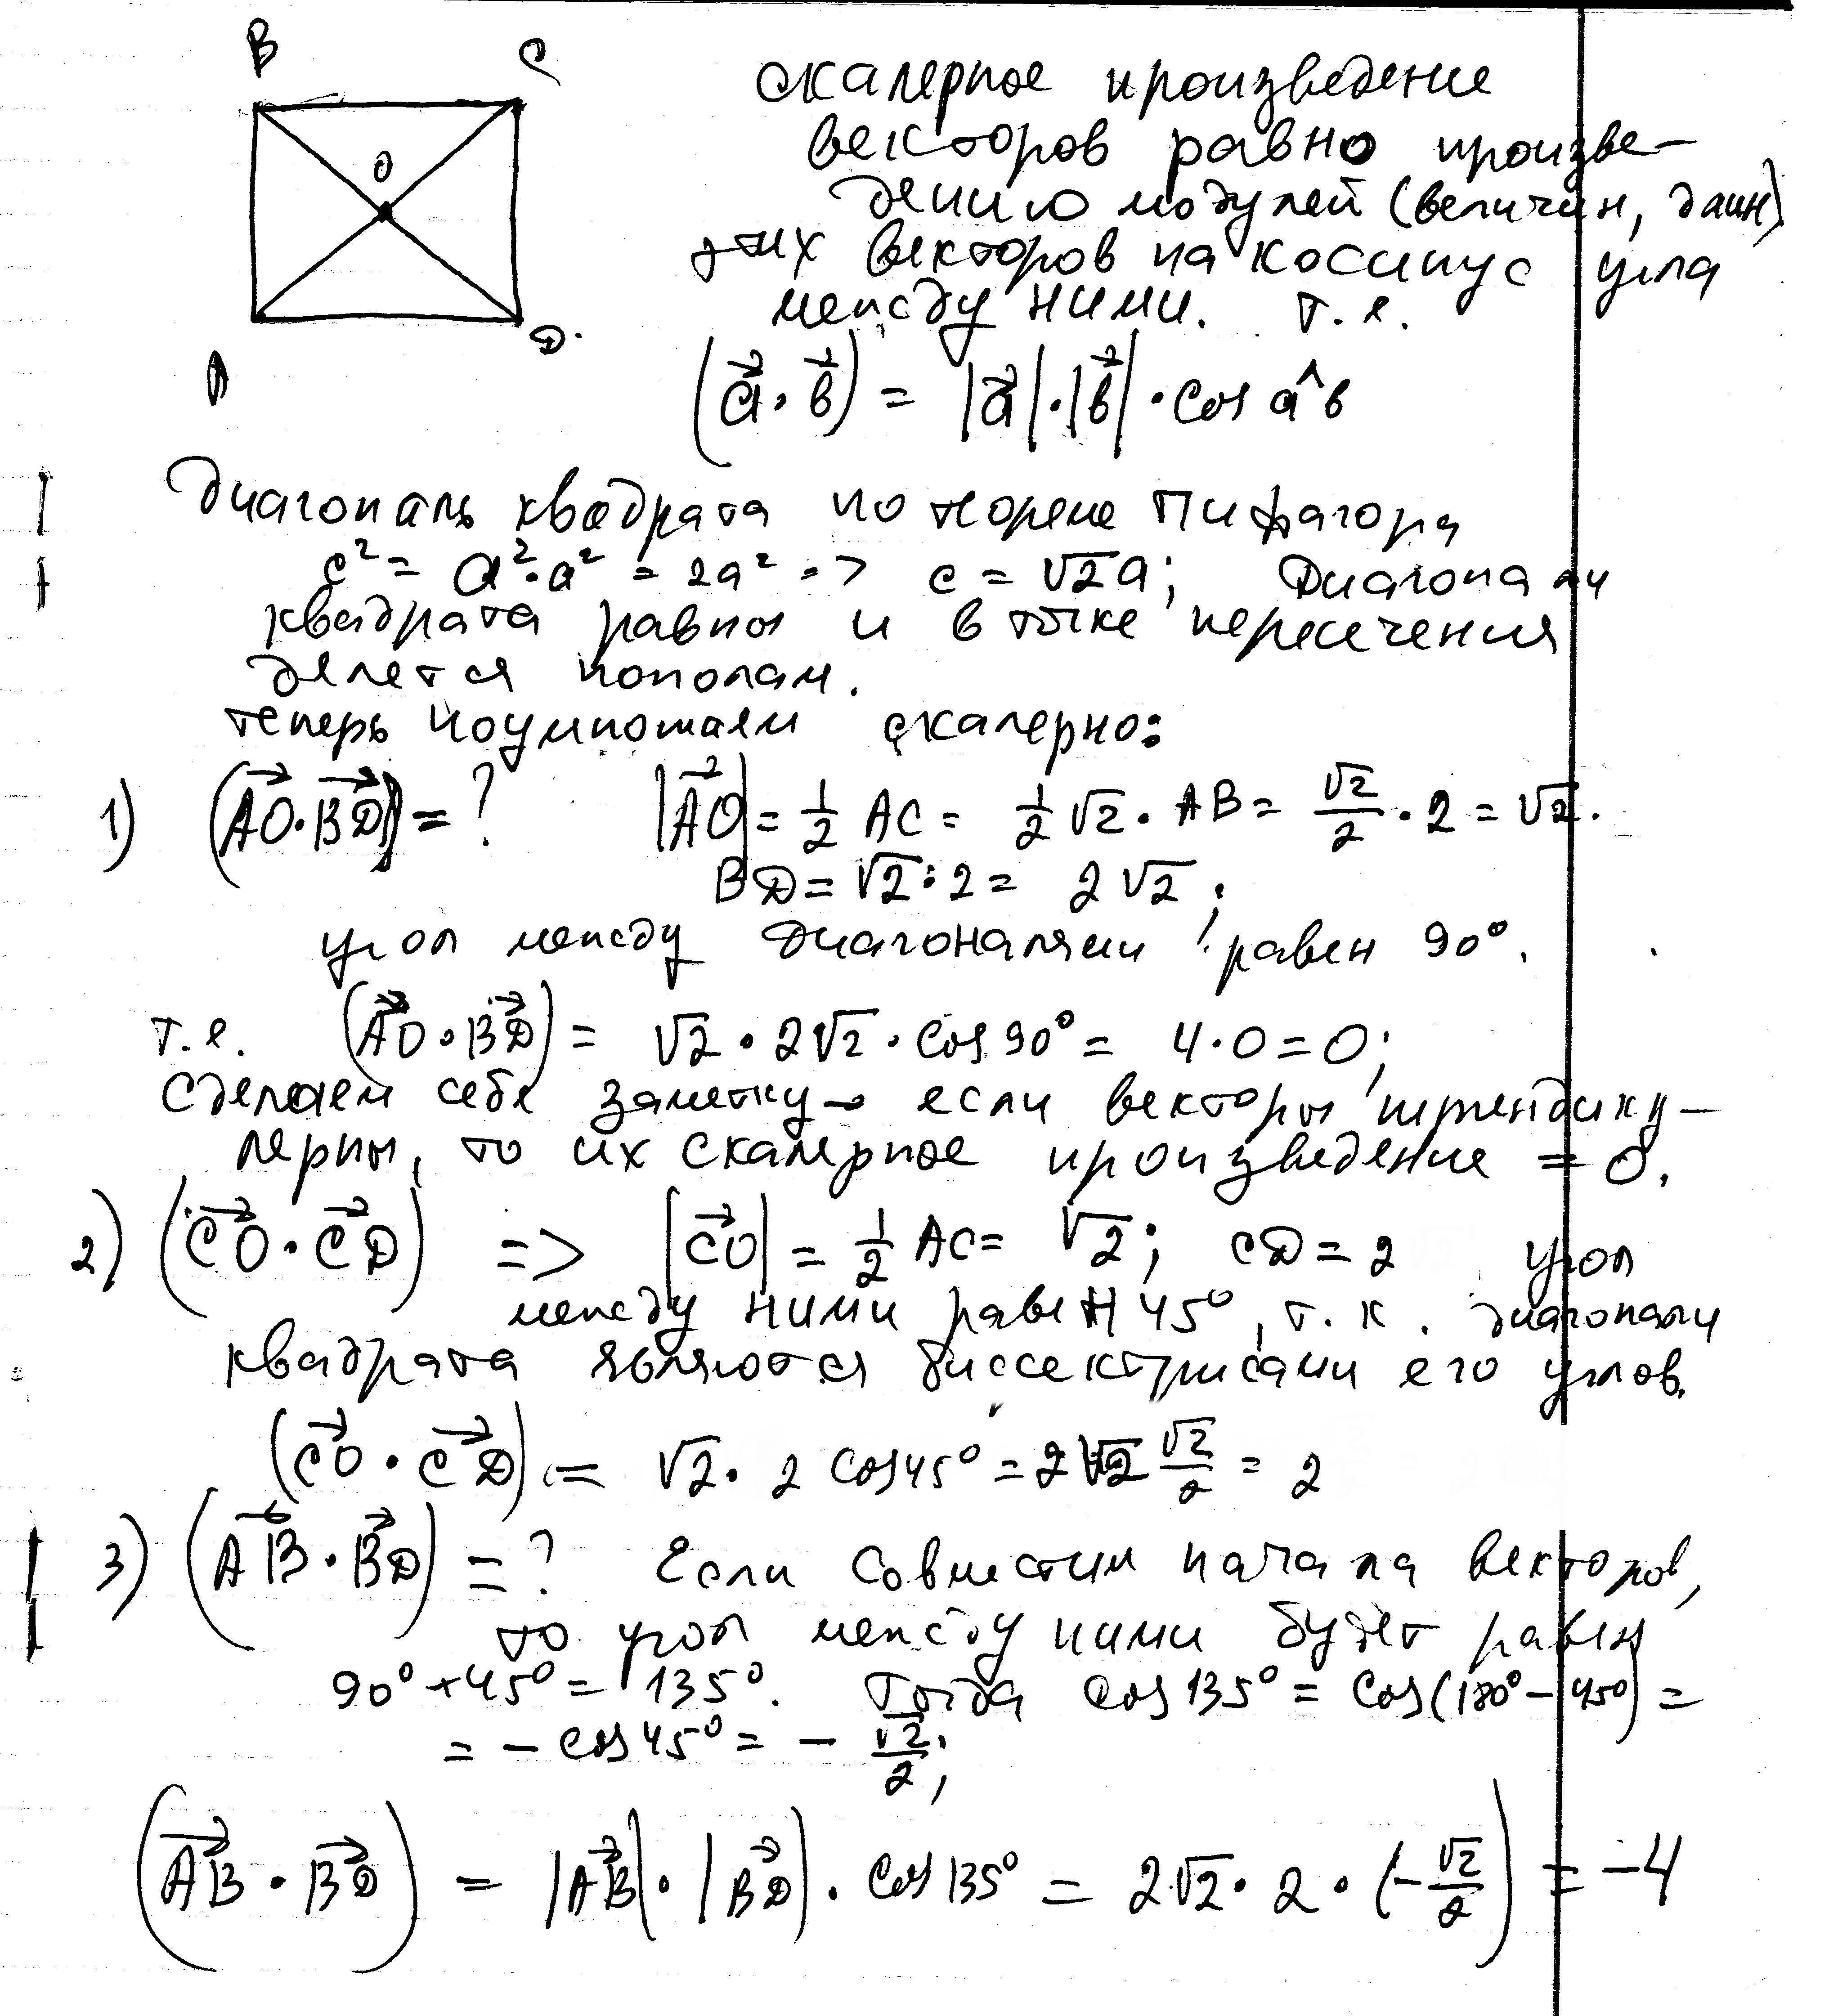 B C
O
A D.
скалерное произведение
векторов равно произве-
дению модулей (величин, длин)
этих векторов на косинус угла
между ними. т.е.
(a⃗·b⃗) = |a⃗|·|b⃗|·cos a^b
Диагональ квадрата по теореме Пифагора
c² = a²·a² = 2a² => c = √2a; Диагонали
квадрата равны и в точке пересечения
делется пополам.
теперь поумножаем скалерно:
1) (AO⃗·BD⃗) = ? |AO⃗| = 1/2 AC = 1/2 √2·AB = √2/2·2 = √2.
BD = √2·2 = 2√2;
угол между диагоналями равен 90°.
т.е. (AO⃗·BD⃗) = √2·2√2·cos90° = 4·0 = 0;
Сделаем себе заметку - если векторы перпендику-
лерны, то их скалерное произведение = 0.
2) (CO⃗·CD⃗) => |CO⃗| = 1/2 AC = √2; CD = 2 угол
между ними равен 45°, т.к. диагонали
квадрата являются биссектрисами его углов.
(CO⃗·CD⃗) = √2·2 cos45° = 2√2 √2/2 = 2
3) (AB⃗·BD⃗) = ? Если совместим начала векторов,
то угол между ними будет равен
90°+45° = 135°. Тогда cos135° = cos(180°-45°) =
= - cos45° = - √2/2;
(AB⃗·BD⃗) = |AB⃗|·|BD⃗|·cos135° = 2√2·2·(-√2/2) = -4